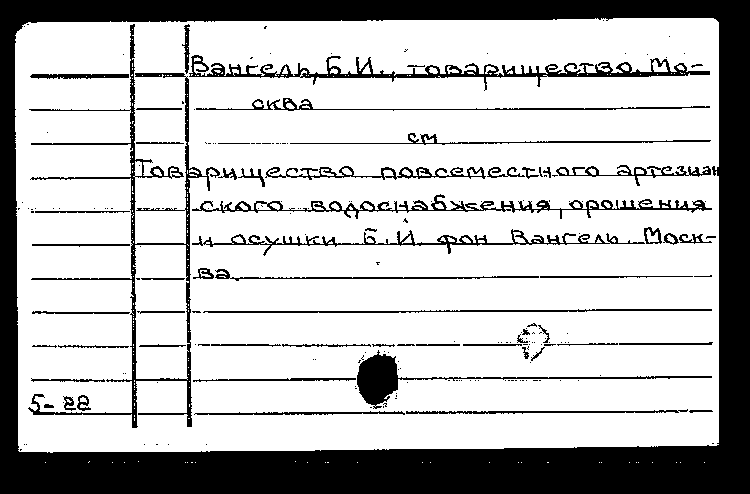 Вангель, Б.И., товарищество. Мо-
сква
см.
Товарищество повсеместного артезиан
ского водоснабжения, орошения
и осушки Б.И. фон Вангель. Моск-
ва.
5-22